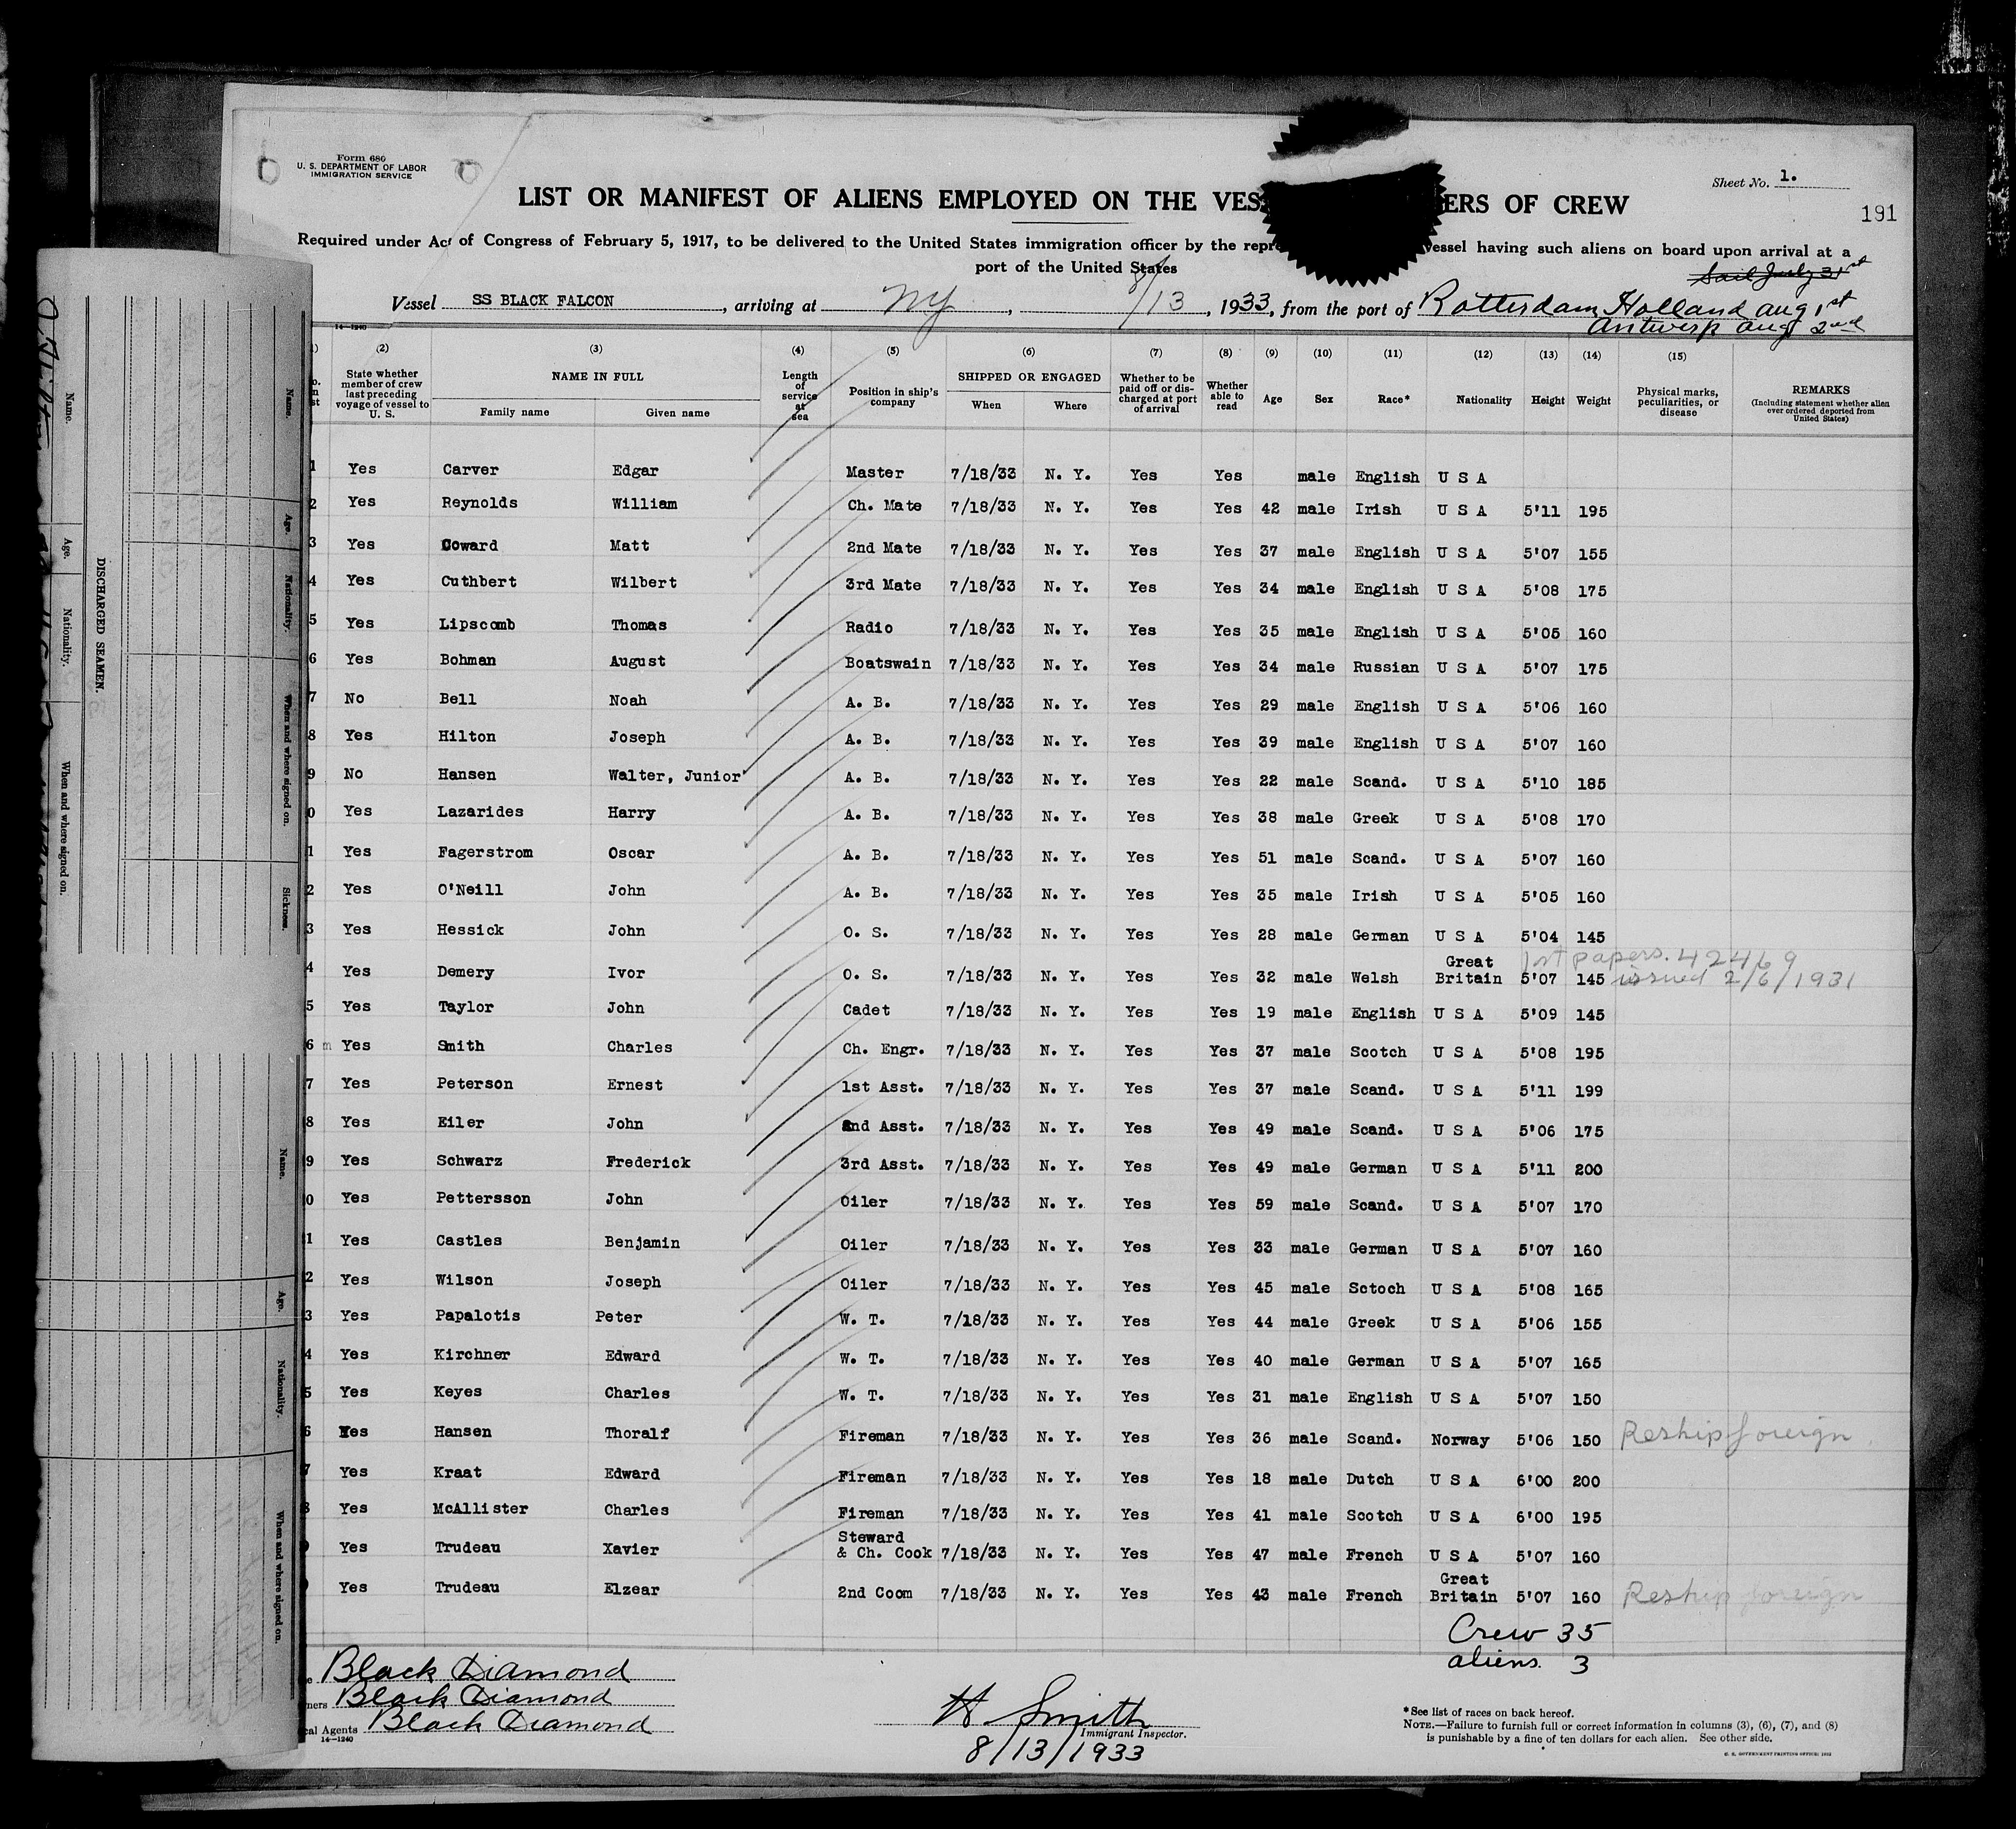 Form 680
U. S. DEPARTMENT OF LABOR
IMMIGRATION SERVICE
Sheet No. 1.
191
LIST OR MANIFEST OF ALIENS EMPLOYED ON THE VES ERS OF CREW
Required under Act of Congress of February 5, 1917, to be delivered to the United States immigration officer by the repre vessel having such aliens on board upon arrival at a
port of the United States
Sail July 31st
Vessel SS BLACK FALCON, arriving at NY, 8/13, 1933, from the port of Rotterdam Holland aug 1st
Antwerp aug 2nd
14—1240
(2) (3) (4) (5) (6) (7) (8) (9) (10) (11) (12) (13) (14) (15)
State whether member of crew last preceding voyage of vessel to U. S. NAME IN FULL Family name Given name Length of service at sea Position in ship's company SHIPPED OR ENGAGED When Where Whether to be paid off or discharged at port of arrival Whether able to read Age Sex Race* Nationality Height Weight Physical marks, peculiarities, or disease REMARKS (Including statement whether alien ever ordered deported from United States)
1 Yes Carver Edgar Master 7/18/33 N. Y. Yes Yes male English U S A
2 Yes Reynolds William Ch. Mate 7/18/33 N. Y. Yes Yes 42 male Irish U S A 5'11 195
3 Yes Coward Matt 2nd Mate 7/18/33 N. Y. Yes Yes 37 male English U S A 5'07 155
4 Yes Cuthbert Wilbert 3rd Mate 7/18/33 N. Y. Yes Yes 34 male English U S A 5'08 175
5 Yes Lipscomb Thomas Radio 7/18/33 N. Y. Yes Yes 35 male English U S A 5'05 160
6 Yes Bohman August Boatswain 7/18/33 N. Y. Yes Yes 34 male Russian U S A 5'07 175
7 No Bell Noah A. B. 7/18/33 N. Y. Yes Yes 29 male English U S A 5'06 160
8 Yes Hilton Joseph A. B. 7/18/33 N. Y. Yes Yes 39 male English U S A 5'07 160
9 No Hansen Walter, Junior A. B. 7/18/33 N. Y. Yes Yes 22 male Scand. U S A 5'10 185
0 Yes Lazarides Harry A. B. 7/18/33 N. Y. Yes Yes 38 male Greek U S A 5'08 170
1 Yes Fagerstrom Oscar A. B. 7/18/33 N. Y. Yes Yes 51 male Scand. U S A 5'07 160
2 Yes O'Neill John A. B. 7/18/33 N. Y. Yes Yes 35 male Irish U S A 5'05 160
3 Yes Hessick John O. S. 7/18/33 N. Y. Yes Yes 28 male German U S A 5'04 145
4 Yes Demery Ivor O. S. 7/18/33 N. Y. Yes Yes 32 male Welsh Great Britain 5'07 145 1st papers. 42469 issued 2/6/1931
5 Yes Taylor John Cadet 7/18/33 N. Y. Yes Yes 19 male English U S A 5'09 145
6 m Yes Smith Charles Ch. Engr. 7/18/33 N. Y. Yes Yes 37 male Scotch U S A 5'08 195
7 Yes Peterson Ernest 1st Asst. 7/18/33 N. Y. Yes Yes 37 male Scand. U S A 5'11 199
8 Yes Eiler John 2nd Asst. 7/18/33 N. Y. Yes Yes 49 male Scand. U S A 5'06 175
9 Yes Schwarz Frederick 3rd Asst. 7/18/33 N. Y. Yes Yes 49 male German U S A 5'11 200
0 Yes Pettersson John Oiler 7/18/33 N. Y. Yes Yes 59 male Scand. U S A 5'07 170
1 Yes Castles Benjamin Oiler 7/18/33 N. Y. Yes Yes 33 male German U S A 5'07 160
2 Yes Wilson Joseph Oiler 7/18/33 N. Y. Yes Yes 45 male Sctoch U S A 5'08 165
3 Yes Papalotis Peter W. T. 7/18/33 N. Y. Yes Yes 44 male Greek U S A 5'06 155
4 Yes Kirchner Edward W. T. 7/18/33 N. Y. Yes Yes 40 male German U S A 5'07 165
5 Yes Keyes Charles W. T. 7/18/33 N. Y. Yes Yes 31 male English U S A 5'07 150
6 Yes Hansen Thoralf Fireman 7/18/33 N. Y. Yes Yes 36 male Scand. Norway 5'06 150 Reship foreign
7 Yes Kraat Edward Fireman 7/18/33 N. Y. Yes Yes 18 male Dutch U S A 6'00 200
8 Yes McAllister Charles Fireman 7/18/33 N. Y. Yes Yes 41 male Scotch U S A 6'00 195
Yes Trudeau Xavier Steward & Ch. Cook 7/18/33 N. Y. Yes Yes 47 male French U S A 5'07 160
Yes Trudeau Elzear 2nd Coom 7/18/33 N. Y. Yes Yes 43 male French Great Britain 5'07 160 Reship foreign
Crew 35
aliens. 3
Black Diamond
ners Black Diamond
cal Agents Black Diamond
14—1240
H Smith
Immigrant Inspector.
8/13/1933
*See list of races on back hereof.
NOTE.—Failure to furnish full or correct information in columns (3), (6), (7), and (8)
is punishable by a fine of ten dollars for each alien. See other side.
U. S. GOVERNMENT PRINTING OFFICE: 1932
DISCHARGED SEAMEN.
Name. Age. Nationality. When and where signed on.
Name. Age. Nationality. When and where signed on. Sickness.
Name. Age. Nationality. When and where signed on.